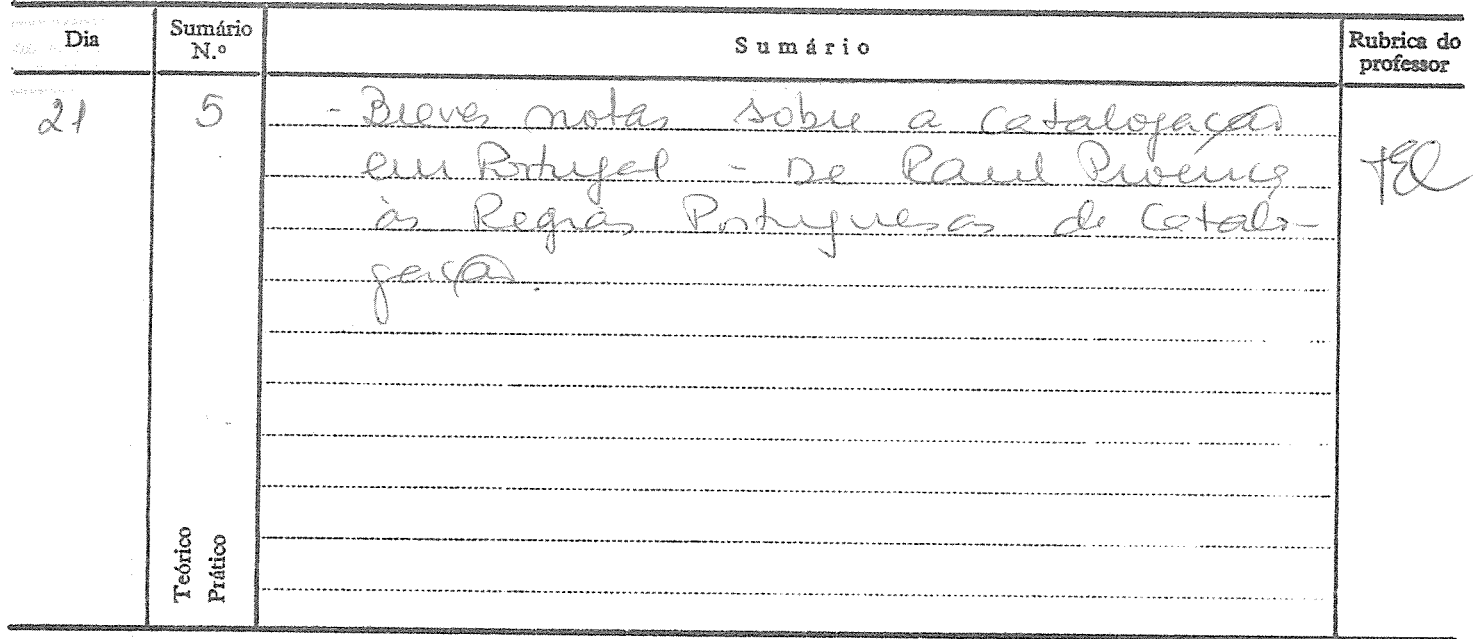 Dia
Sumário N.º
Sumário
Rubrica do professor
21
5
- Breves notas sobre a catalogação
em Portugal - De Raul Proença
às Regras Portuguesas de Catalo-
gação.
Teórico
Prático